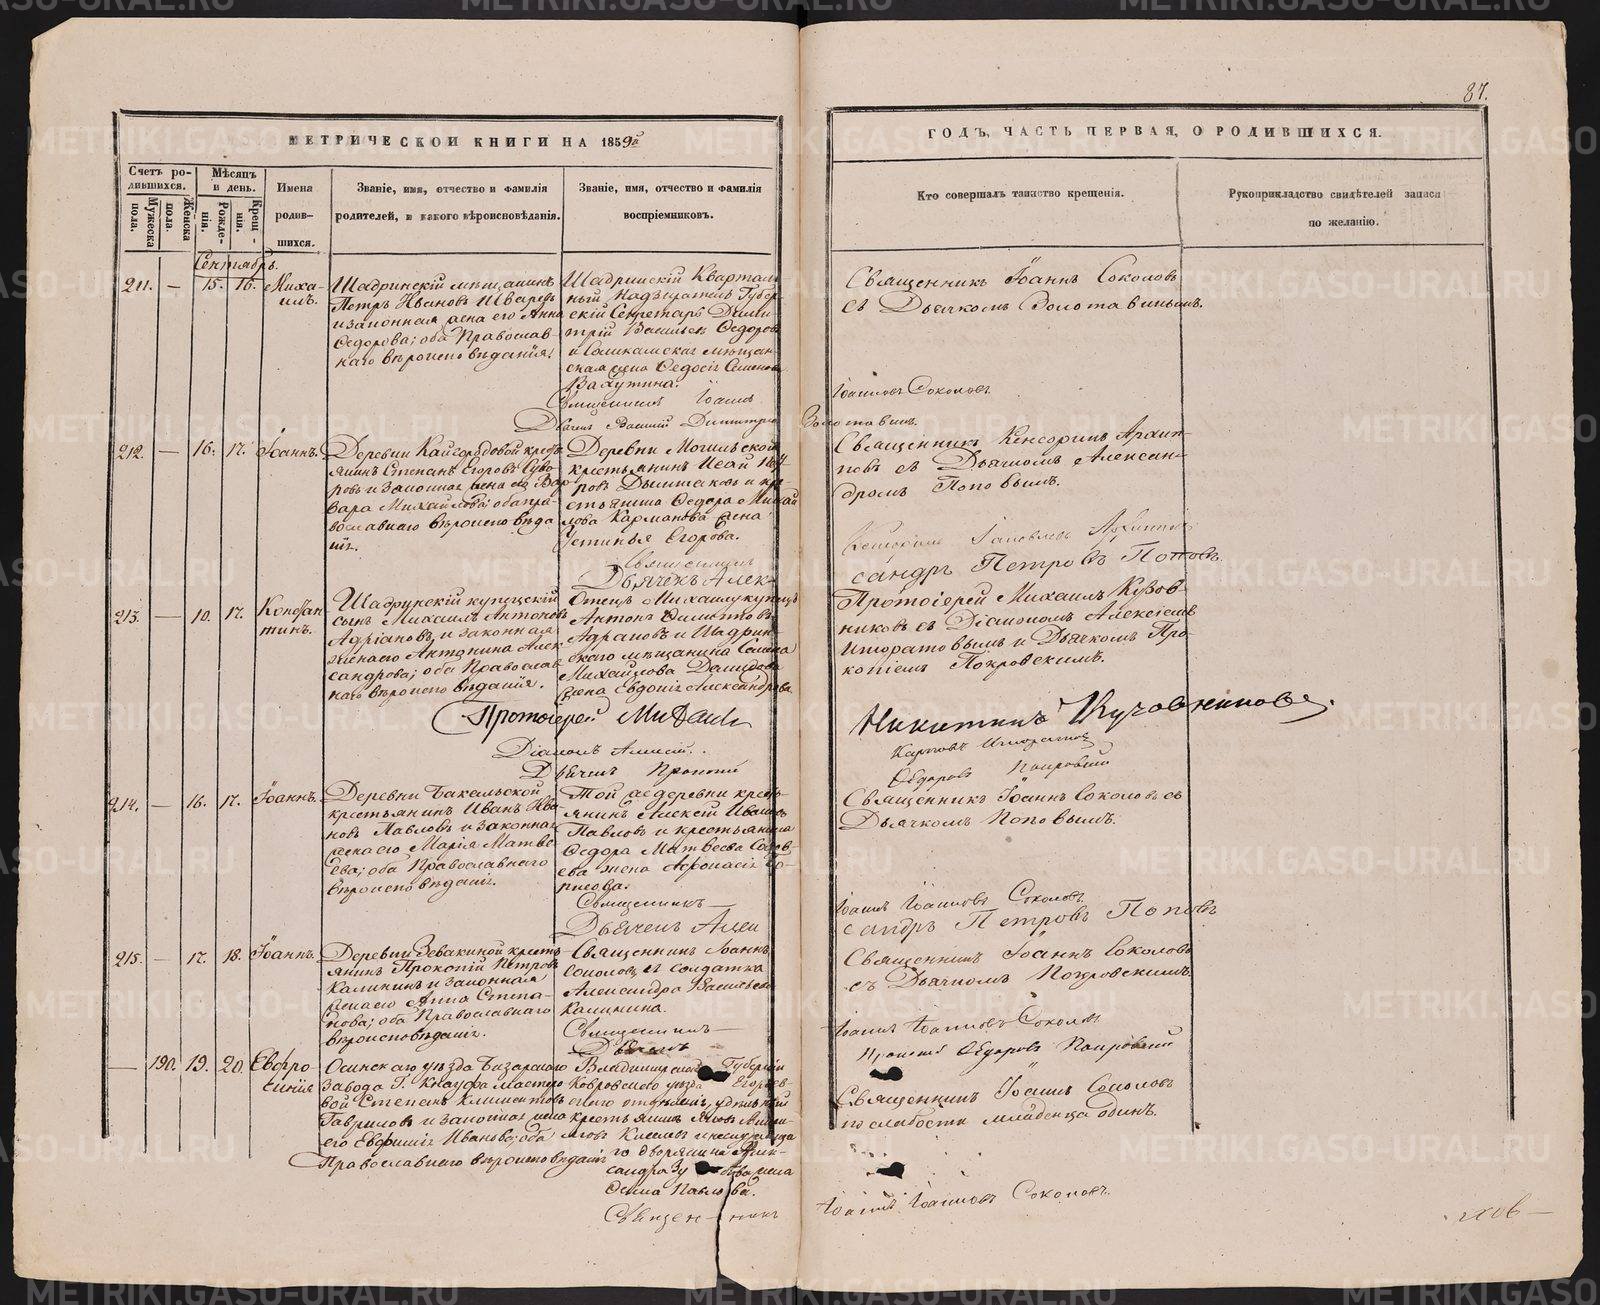 87.
МЕТРИЧЕСКОЙ КНИГИ НА 1859й
ГОДЪ, ЧАСТЬ ПЕРВАЯ, О РОДИВШИХСЯ.
Счетъ ро-
дившихся.
Мужеска
пола.
Женска
пола.
Мѣсяцъ
и день.
Рожде-
нія.
Крещ-
нія.
Имена
родив-
шихся.
Званіе, имя, отчество и фамилія
родителей, и какого вѣроисповѣданія.
Званіе, имя, отчество и фамилія
воспріемниковъ.
Кто совершалъ таинство крещенія.
Рукоприкладство свидѣтелей записи
по желанію.
Сентябрь.
211. — 15. 16.
Миха-
илъ.
Шадринскій мѣщанинъ
Петръ Ивановъ
и законная жена его Анна
Ѳедорова; оба Православ-
наго вѣроисповѣданія.
Шадринскій Кварталь-
ный Надзиратель Губерн-
скій Секретарь Дими-
трій Васильевъ Ѳедоровъ
мѣщан-
ская жена Ѳедосія Семенова
Вахутина.
Священникъ Іоаннъ
Дьячекъ Василій Димитріев
Священникъ Іоаннъ Соколовъ
съ Дьячкомъ Золотавинымъ.
Іоанновъ Соколовъ.
Золотавинъ.
212. — 16. 17. Іоаннъ.
Деревни Кайгородовой кресть-
янинъ Степанъ Егоровъ Суво-
ровъ и законная жена его Вар-
вара Михайлова; оба пра-
вославнаго вѣроисповѣда-
нія.
Деревни Могильской
крестьянинъ Исай
и кре-
стьянина Ѳедора Михай-
лова Карманова жена
Устинья Егорова.
Священникъ
Дьячекъ Алек-
Священникъ Кенсоринъ Архип-
повъ съ Дьячкомъ Алексан-
дромъ Поповымъ.
Кенсоринъ Іаковлевъ Архиппов
сандръ Петровъ Поповъ.
213. — 10. 17.
Констан
тинъ.
Шадринскій купеческій
сынъ Михаилъ Антоновъ
Адріановъ, и законная
жена его Антонина Алек
сандрова; оба Православ
наго вѣроисповѣданія.
Отецъ Михаилу купецъ
Антонъ Филипповъ
Адріановъ и Шадрин-
скаго мѣщанина Семена
Михайлова Давыдова
жена Евдокія Александрова.
Протоіерей Михаилъ
Діаконъ Алексій
Дьячекъ Прокопій
Протоіерей Михаилъ Кузов-
никовъ съ Діакономъ Алексіемъ
Игноратовымъ и Дьячкомъ Про-
копіемъ Покровскимъ.
Никитинъ Кузовниковъ.
Карповъ Игноратовъ
Ѳедоровъ Покровскій
214. — 16. 17. Іоаннъ.
Деревни Бакальской
крестьянинъ Иванъ Ива-
новъ Павловъ и законная
жена его Марія Матвѣ-
ева; оба Православнаго
вѣроисповѣданія.
Той же деревни кресть-
янинъ Алексѣй Ивановъ
Павловъ и крестьянина
Ѳедора Матвѣева Солов-
ьева жена Аѳонасія Бо-
рисова.
Священникъ —
Дьячекъ Алек
Священникъ Іоаннъ Соколовъ съ
Дьячкомъ Поповымъ.
Іоаннъ Іоанновъ Соколовъ.
сандръ Петровъ Поповъ
215. — 17. 18. Іоаннъ.
Деревни Зевакиной кресть-
янинъ Прокопій Петровъ
Калининъ и законная
жена его Анна Степа-
нова; оба Православнаго
вѣроисповѣданія.
Священникъ Іоаннъ
Соколовъ, и солдатка
Александра Васильева
Калинина.
Священникъ —
Дьячекъ
Священникъ Іоаннъ Соколовъ
съ Дьячкомъ Покровскимъ.
Іоаннъ Іоанновъ Соколовъ
Прокопій Ѳедоровъ Покровскій
— 190. 19. 20.
Евфро-
синія
Осинскаго уѣзда Бизярскаго
Завода Г. Кнауфа мастеро-
вой Степанъ Климентовъ
Гавриловъ и законная жена
его Евфимія Иванова; оба
Православнаго вѣроисповѣданія
Владимирской Губерніи
Ковровскаго уѣзда Егорьев-
скаго отдѣленія, удѣльный
крестьянинъ
го дворянина Алек-
сандра
Ѳекла Павлова.
Священникъ
Священникъ Іоаннъ Соколовъ
по слабости младенца одинъ.
Іоаннъ Іоанновъ Соколовъ.